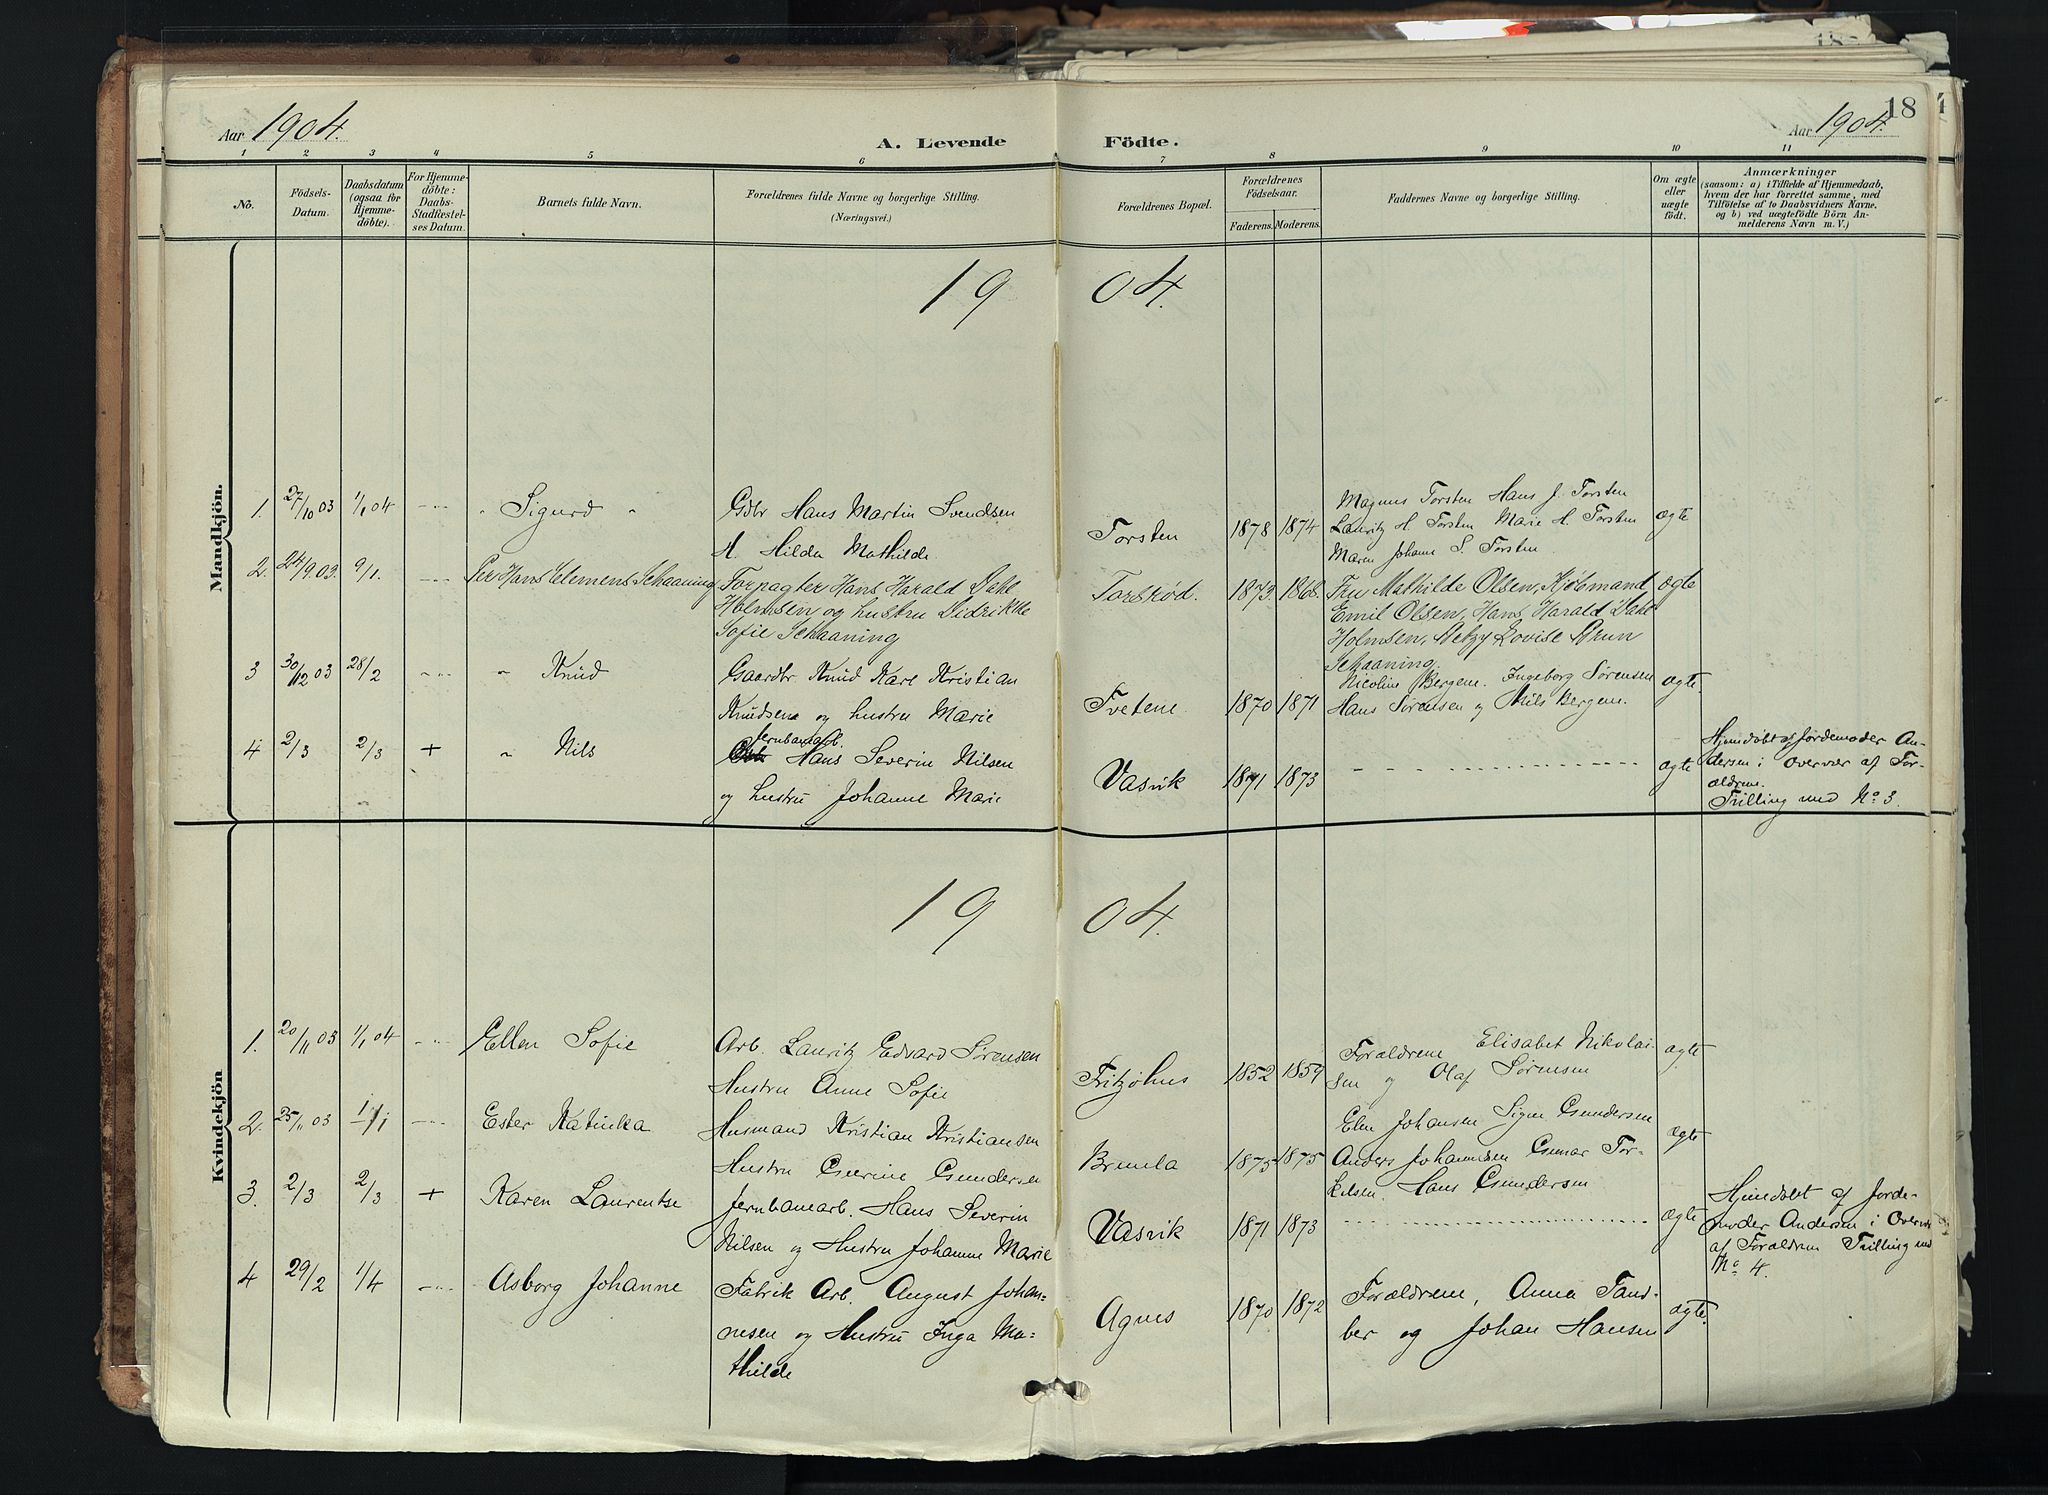 18
Aar 1904.
A. Levende Födte.
Aar 1904.
1 2 3 4 5 6 7 8 9 10 11
No.
Födsels-
Datum.
Daabsdatum
(ogsaa for
Hjemme-
döbte).
For Hjemme-
döbte:
Daabs-
Stadfæstel-
ses Datum.
Barnets fulde Navn.
Forældrenes fulde Navne og borgerlige Stilling.
(Næringsvei.)
Forældrenes Bopæl.
Forældrenes
Födselsaar.
Faderens. Moderens.
Faddernes Navne og borgerlige Stilling.
Om ægte
eller
uægte
födt.
Anmærkninger
(saasom: a) i Tilfælde af Hjemmedaab,
hvem der har forrettet samme, med
Tilföielse af to Daabsvidners Navne,
og b) ved uægtefödte Börn An-
melderens Navn m. V.)
Mandkjön.
19 04.
1. 27/10 03 1/1 04 Sigurd
Gdbr Hans Martin Svendsen
H. Hilda Mathilde.
Torsten 1878 1874
Magnus Torsten Hans J. Torsten
Lauritz H. Torsten Marie H. Torsten
Maren Johann S. Torsten.
ægte
2. 24/9.03. 9/1. Per Hans Clemens Schaaning
Forpagter Hans Harald Dahl
Holmsen og hustru Didrikke
Sofie Schaaning
Torskød. 1873. 1868.
Fru Mathilde Olsen, Kjøbmand
Emil Olsen, Hans Harald Dahl
Holmsen, Betzy Lovise Brun
Schaaning.
ægte
3 30/12 03 28/2 Knud
Gaardbr. Knud Karl Kristian
Knudsen og hustru Marie
Tvetene 1870 1871
Nicoline Bergene. Ingeborg Sørensen
Hans Sørensen og Nils Bergene.
ægte
4 2/3 2/3 + Nils
Jernbanearb.
Hans Severin Nilsen
og hustru Johanne Marie
Vasvik 1871 1873
ægte
Hjemdøbt af Jordemoder An-
dersen i Overvær af For-
ældrene.
Tvilling med No 3.
Kvindekjön
19 04.
1. 20/11 03 1/1 04 Ellen Sofie
Arb. Lauritz Edvard Sørensen
Hustru Anne Sofie
Fritzøhus 1852 1859
Forældrene Elisabet Nikolai-
sen og Olaf Sørensen
ægte
2. 25/11 03 1/1 Ester Katinka
Husmand Kristian Kristiansen
Hustru Gurine Gundersen
Brunla 1875 1875
Elen Johansen Signe Gundersen
Anders Johannsen Gunnar Tor-
kelsen. Hans Gundersen
ægte
3. 2/3 2/3 + Karen Laurentse
Jernbanearb. Hans Severin
Nilsen og Hustru Johanne Marie
Vasvik 1871 1873
ægte
Hjemdøbt af Jorde-
moder Andersen i Overvær
af Forældrene Tvilling med
No 4.
4 29/2 1/4 Asborg Johanne
Fabrik Arb. August Johan-
nesen og Hustru Inga Ma-
thilde
Agnes 1870 1872
Forældrene, Anna Tand-
ber og Johan Hansen
ægte.